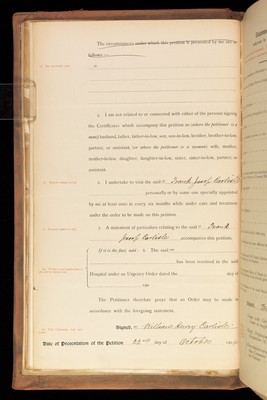 The circumstances under which this petition is presented by me are as
follows :—
5. I am not related to or connected with either of the persons signing
the Certificates which accompany this petition as (where the petitioner is a
man) husband, father, father-in-law, son, son-in-law, brother, brother-in-law,
partner, or assistant, (or where the petitioner is a woman) wife, mother,
mother-in-law, daughter, daughter-in-law, sister, sister-in-law, partner, or
assistant.
6. I undertake to visit the said Frank Josef Carlisle
personally or by some one specially appointed
by me at least once in every six months while under care and treatment
under the order to be made on this petition.
7. A statement of particulars relating to the said Frank
Josef Carlisle accompanies this petition.
If it is the fact, add: 8. The said
has been received in the said
Hospital under an Urgency Order dated the day of
190
The Petitioner therefore prays that an Order may be made in
accordance with the foregoing statement.
Signed, William Henry Carlisle
Date of Presentation of the Petition 22nd day of October 190